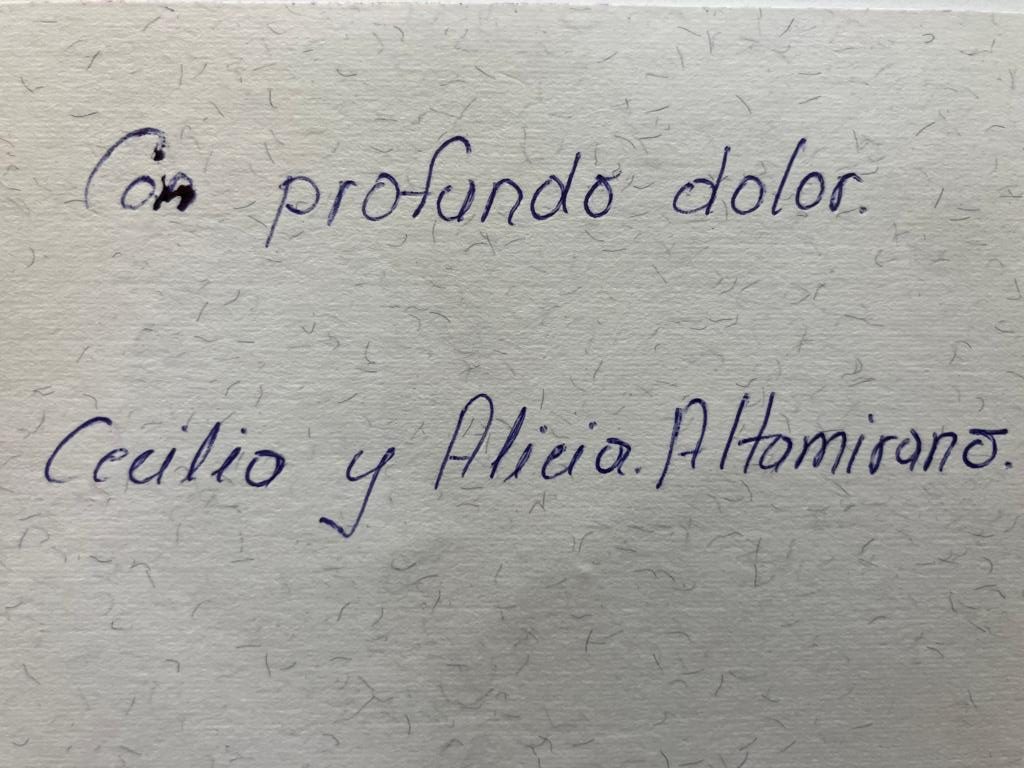 Con profundo dolor.
Cecilio y Alicia. Altamirano.